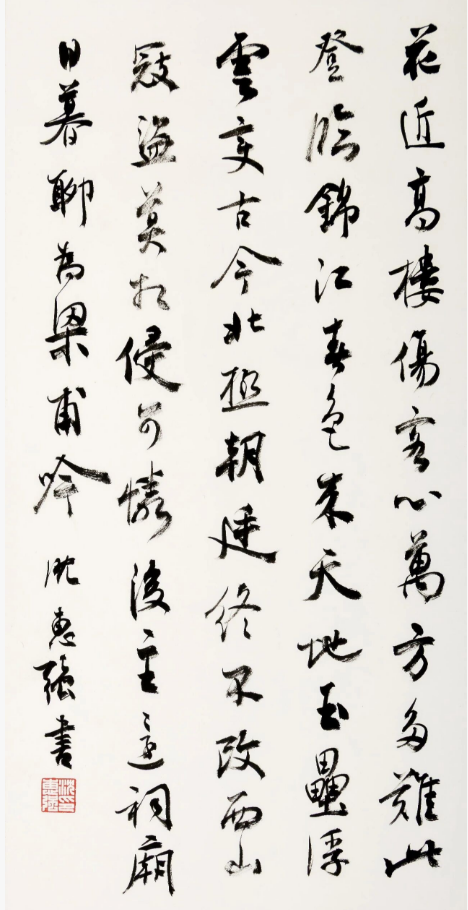 花近高樓傷客心萬方多難此
登臨錦江春色來天地玉壘浮
雲變古今北極朝廷終不改西山
寇盜莫相侵可憐後主還祠廟
日暮聊為梁甫吟 沈惠強書